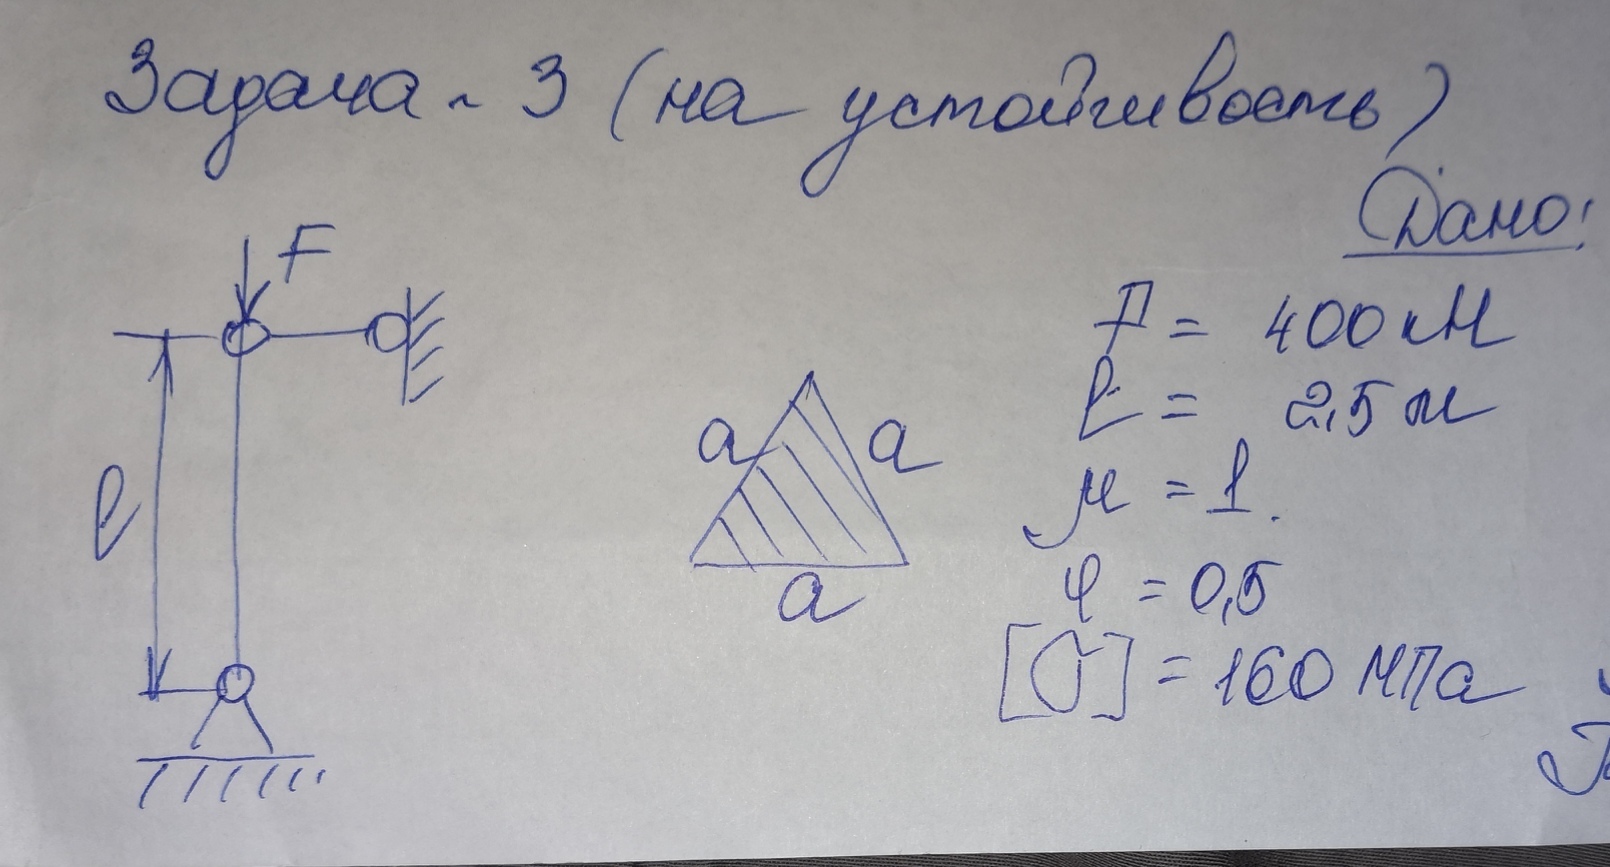 Задача - 3 (на устойчивость)
Дано:
F
F = 400 кН
l = 2,5 м
a
a
μ = 1.
l
φ = 0,5
a
[σ] = 160 МПа